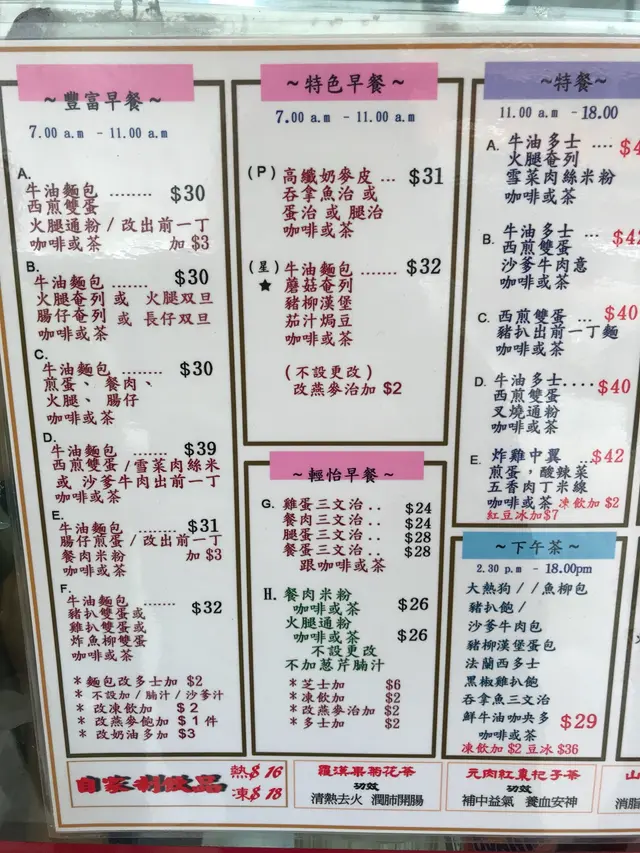 ～豐富早餐～
7.00 a.m - 11.00 a.m
A.
牛油麵包 ........ $30
西煎雙蛋
火腿通粉 / 改出前一丁
咖啡或茶 加 $3
B.
牛油麵包 ...... $30
火腿奄列 或 火腿双旦
腸仔奄列 或 長仔双旦
咖啡或茶
C.
牛油麵包 ...... $30
煎蛋、 餐肉、
火腿、 腸仔
咖啡或茶
D.
牛油麵包 ...... $39
西煎雙蛋/雪菜肉絲米
或 沙爹牛肉出前一丁
咖啡或茶
E.
牛油麵包 ...... $31
腸仔煎蛋/改出前一丁
餐肉米粉 加 $3
咖啡或茶
F.
牛油麵包 ...... $32
豬扒雙蛋或
雞扒雙蛋或
炸魚柳雙蛋
咖啡或茶
＊麵包改多士加 $2
＊不設加/腩汁/沙爹汁
＊改凍飲加 $2
＊改燕麥飽加 $1件
＊改奶油多加 $3
～特色早餐～
7.00 a.m - 11.00 a.m
(P) 高纖奶麥皮 ... $31
吞拿魚治 或
蛋治 或 腿治
咖啡或茶
(星) 牛油麵包 ....... $32
★ 蘑菇奄列
豬柳漢堡
茄汁焗豆
咖啡或茶
(不設更改)
改燕麥治加 $2
～輕怡早餐～
G. 雞蛋三文治.. $24
餐肉三文治.. $24
腿蛋三文治.. $28
餐蛋三文治.. $28
跟咖啡或茶
H. 餐肉米粉
咖啡或茶 $26
火腿通粉
咖啡或茶 $26
不設更改
不加蔥芹腩汁
＊芝士加 $6
＊凍飲加 $2
＊改燕麥治加 $2
＊多士加 $2
～特餐
11.00 am - 18.00
A. 牛油多士 .... $4
火腿奄列
雪菜肉絲米粉
咖啡或茶
B. 牛油多士 ... $42
西煎雙蛋
沙爹牛肉意
咖啡或茶
C. 西煎雙蛋 ... $40
豬扒出前一丁麵
咖啡或茶
D. 牛油多士.... $40
西煎雙蛋
叉燒通粉
咖啡或茶
E. 炸雞中翼 ...$42
煎蛋，酸辣菜
五香肉丁米線
咖啡或茶 凍飲加 $2
紅豆冰加$7
～下午茶～
2.30 p.m - 18.00pm
大熱狗//魚柳包
豬扒飽/
沙爹牛肉包
豬柳漢堡蛋包
法蘭西多士
黑椒雞扒飽
吞拿魚三文治
鮮牛油咖央多 $29
咖啡或茶
凍飲加 $2 豆冰 $36
自家制飲品 熱$ 16
凍$ 18
羅漢果菊花茶
功效
清熱去火 潤肺開腸
元肉紅棗杞子茶
功效
補中益氣 養血安神
山
消脂